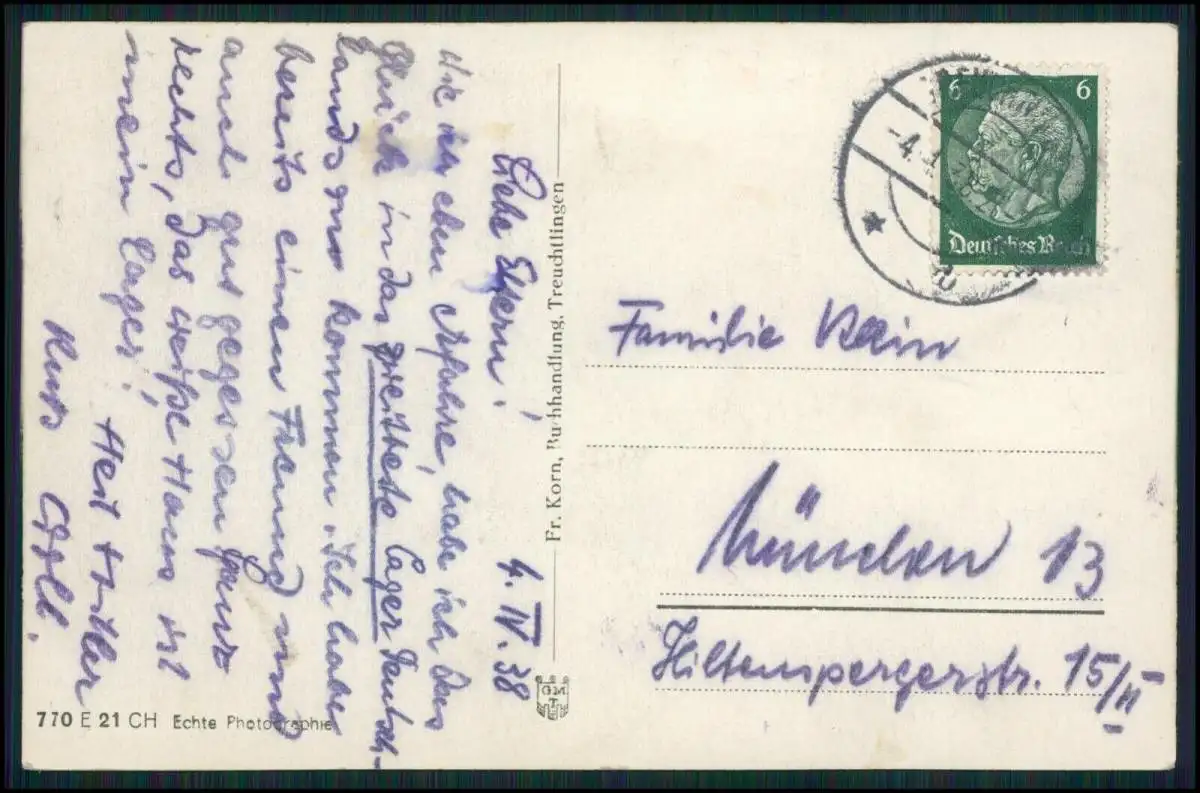 4. IV. 38
Liebe Eltern!
Wie ich eben erfahre, habe ich das
Glück in das größte Lager Deutsch-
lands zu kommen. Ich habe
bereits einen Freund und
auch gut gegessen ganz
rechts, das weiße Haus ist
mein Lager!
Heil Hitler
Fr. Korn, Buchhandlung, Treuchtlingen
GMT
770 E 21 CH Echte Photographie
6 6
Deutsches Reich
-4.
Familie
München 13
Hiltenspergerstr. 15/II